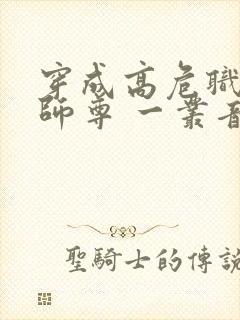 穿成高危職
師尊 一叢音
聖騎士的傳說